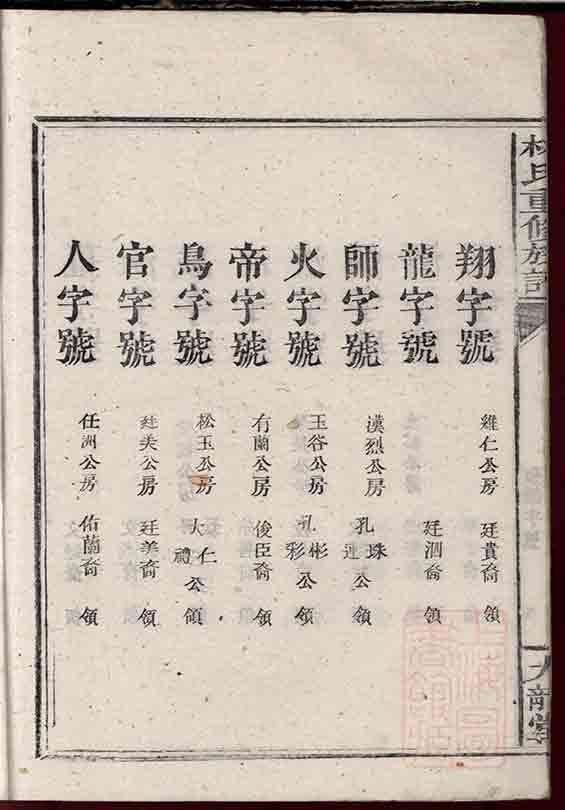 氏重修族譜
翔字號 雞仁公房 廷貴裔 領
龍字號 廷泗裔 領
師字號 漢烈公房 孔珠 連公 領
火字號 玉谷公房 孔彬 彩公 領
帝字號 有蘭公房 俊臣裔 領
鳥字號 松玉公房 大仁 禮公 領
官字號 廷美公房 廷美裔 領
人字號 任洲公房 佑蘭裔 領
上海圖書館藏